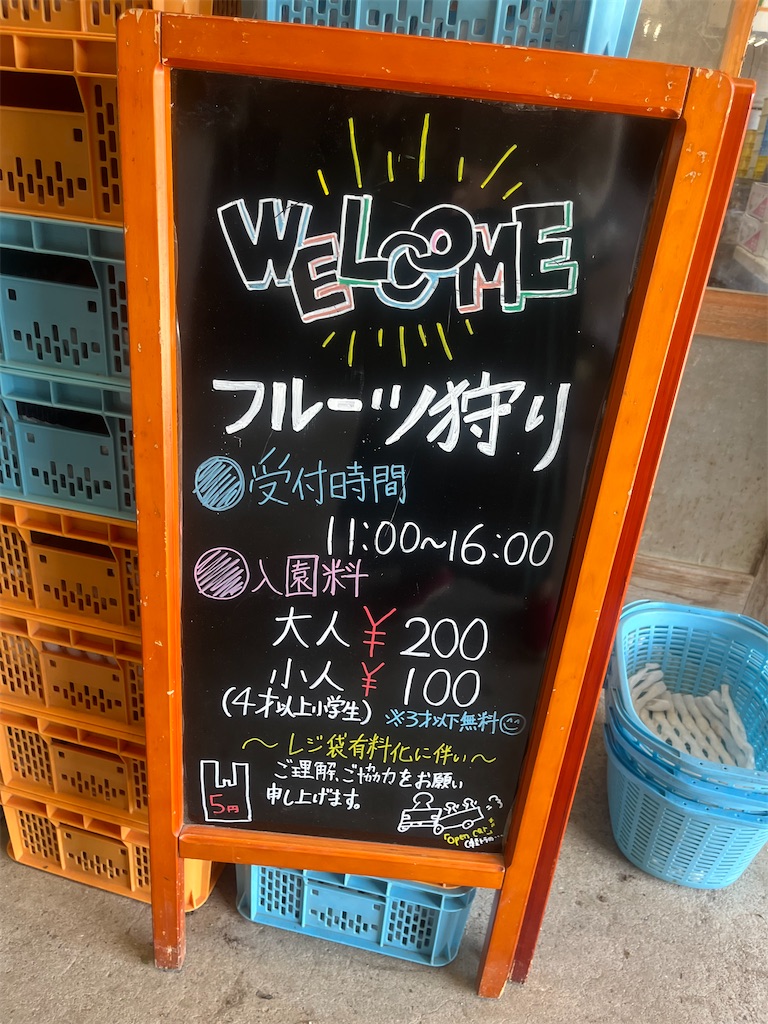 WELCOME
フルーツ狩り
受付時間
11:00~16:00
入園料
大人 ¥200
小人 ¥100
(4才以上小学生) ※3才以下無料
～レジ袋有料化に伴い～
ご理解、ご協力をお願い
申し上げます。
5円
「open car」